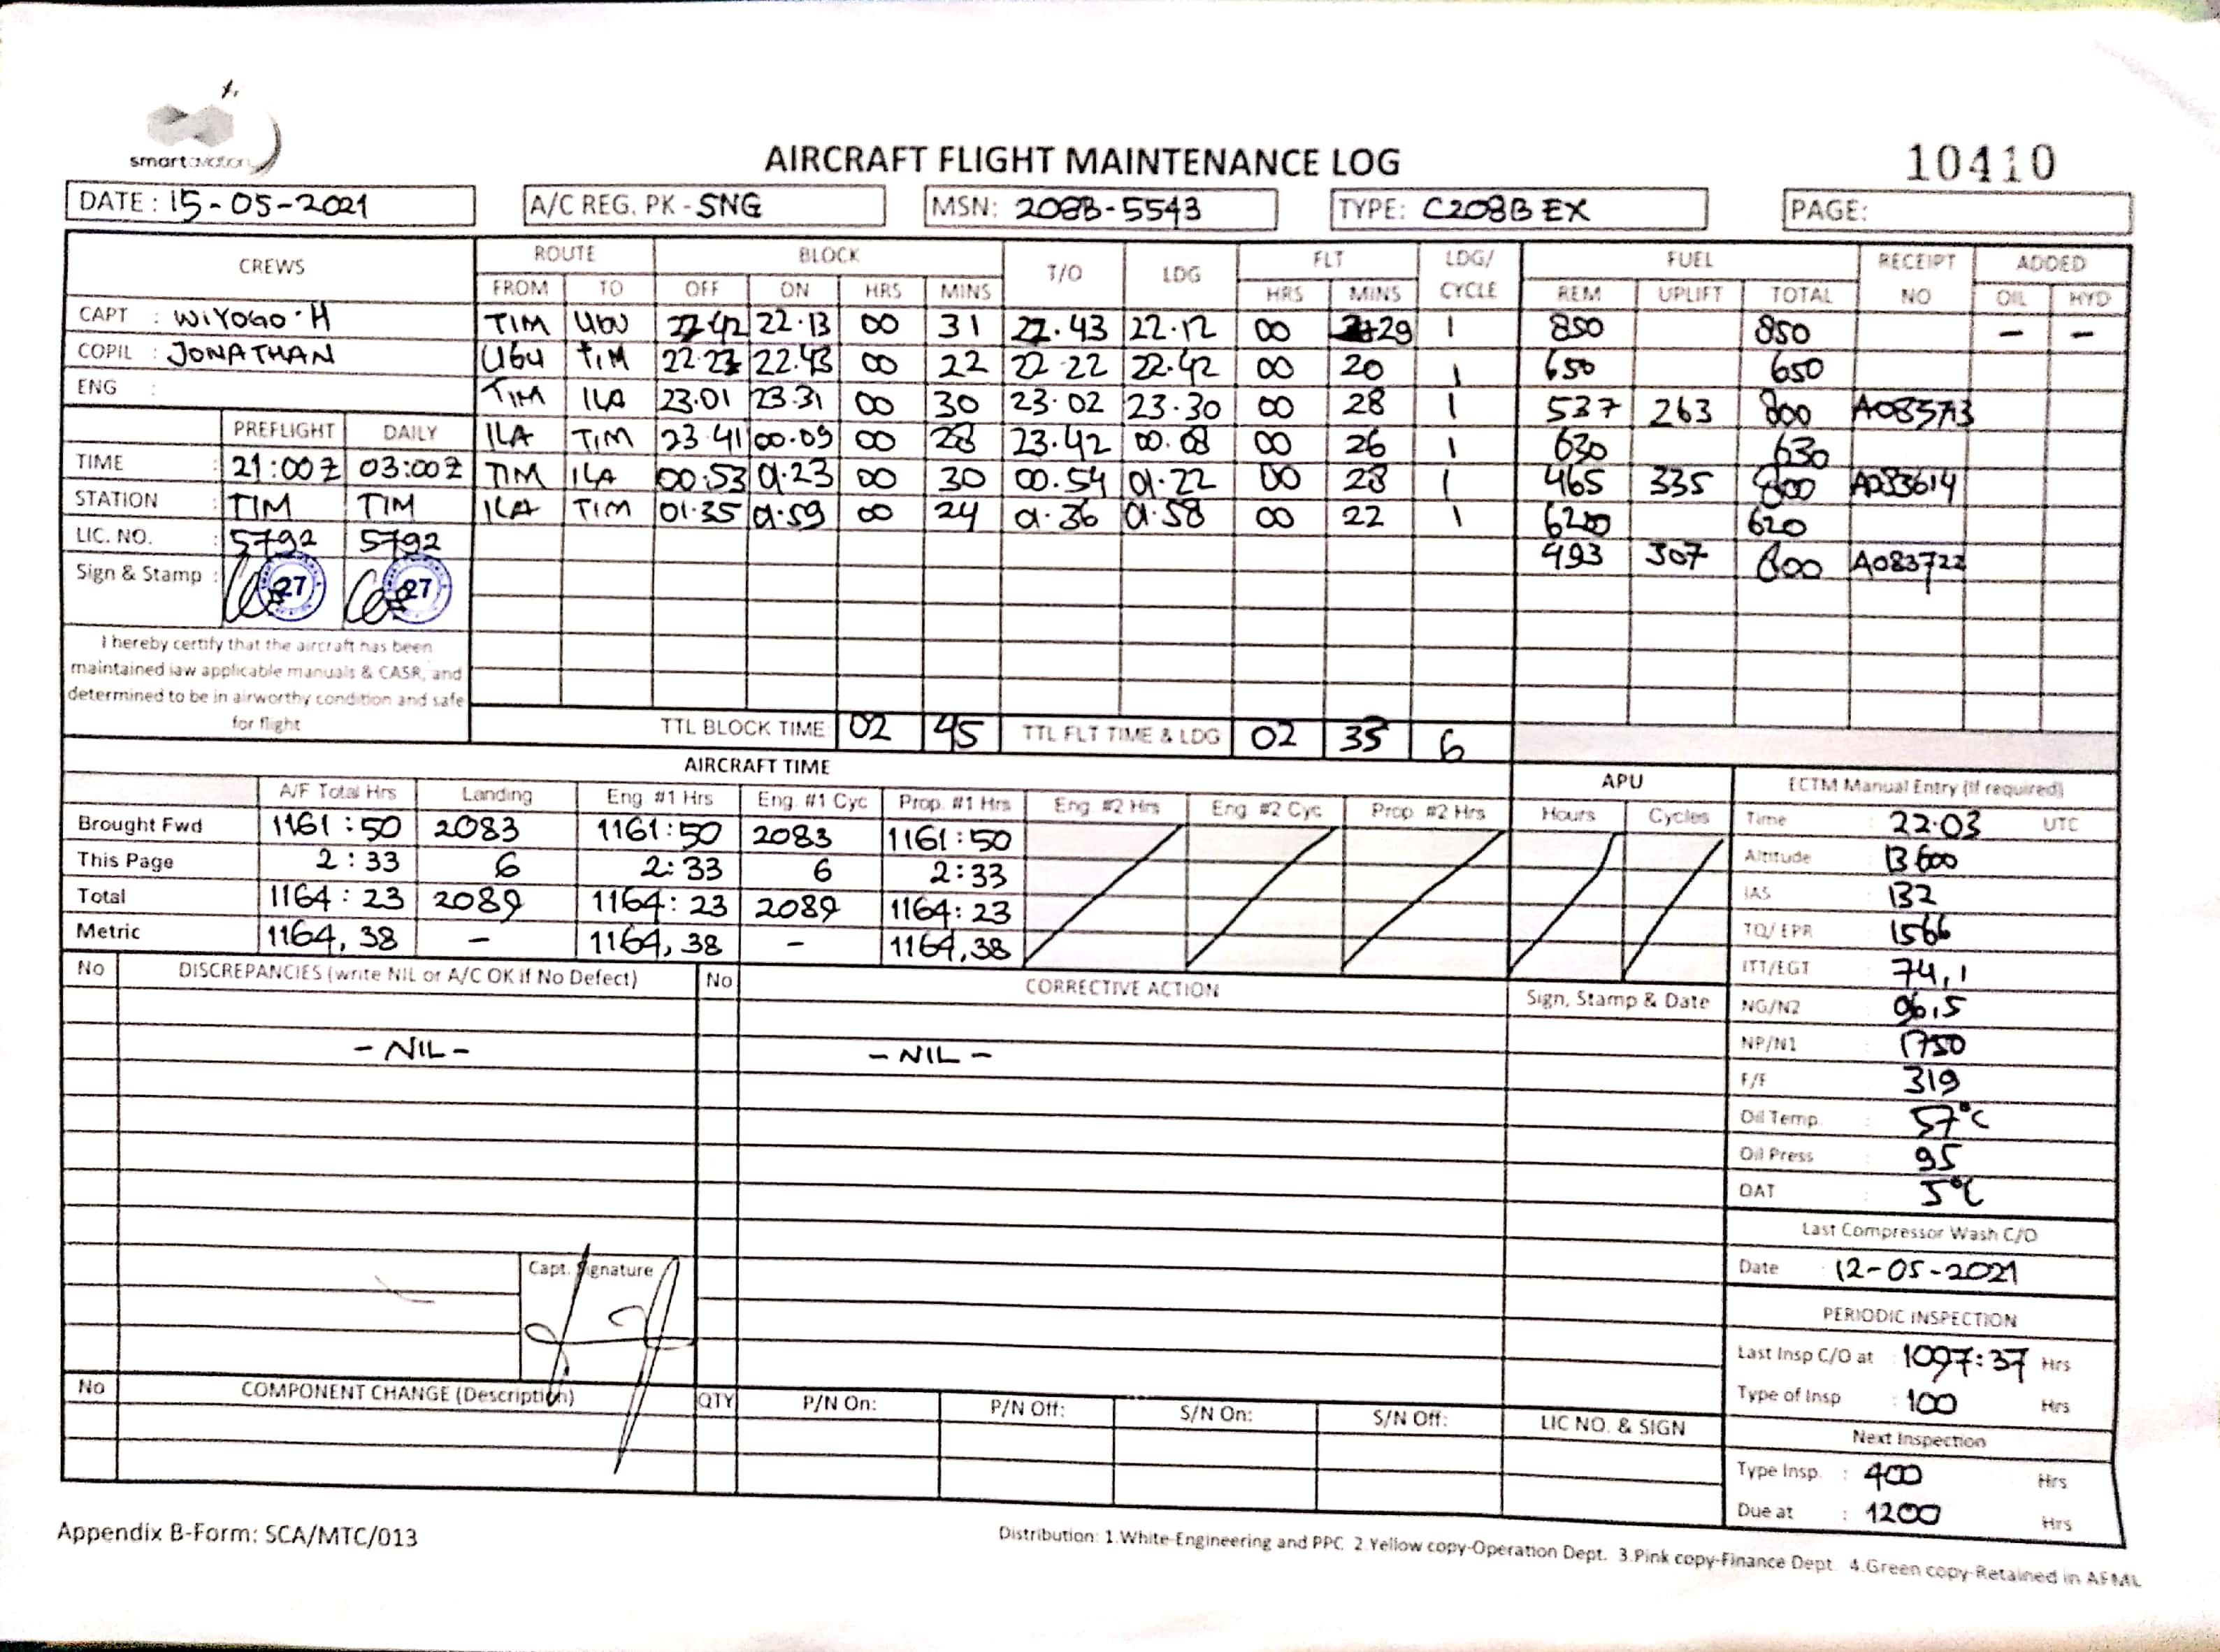 smart aviation
AIRCRAFT FLIGHT MAINTENANCE LOG
10410
DATE : 15-05-2021 A/C REG. PK - SNG MSN: 208B-5543 TYPE: C208B EX PAGE:
CREWS ROUTE BLOCK T/O LDG FLT LDG/ CYCLE FUEL RECEIPT NO ADDED
FROM TO OFF ON HRS MINS HRS MINS REM UPLIFT TOTAL OIL HYD
CAPT : WIYOGO.H
COPIL : JONATHAN
ENG :
TIM UGU 22.13 00 31 22.12 00 29 1 850 850 - -
UGU TIM 22.43 00 22 22 22 22.42 00 20 1 650 650
TIM ILA 23.01 23.31 00 30 23.02 23.30 00 28 1 537 263 800
ILA TIM 23 41 00.09 00 28 23.42 00.08 00 26 1 630 630
TIM ILA 00.53 01.23 00 30 00.54 01.22 00 28 1 465 335 800 A083614
ILA TIM 01.35 01.59 00 24 01.36 01.58 00 22 1 620
493 307 800 A083722
PREFLIGHT DAILY
TIME : 21:00Z 03:00Z
STATION : TIM TIM
LIC. NO. : 5792 5792
Sign & Stamp : 27 27
I hereby certify that the aircraft has been
maintained iaw applicable manuals & CASR, and
determined to be in airworthy condition and safe
for flight
TTL BLOCK TIME 02 45 TTL FLT TIME & LDG 02 33 6
AIRCRAFT TIME APU
A/F Total Hrs Landing Eng. #1 Hrs Eng. #1 Cyc Prop. #1 Hrs Eng #2 Hrs Eng #2 Cyc Prop #2 Hrs Hours Cycles
Brought Fwd 1161:50 2083 1161:50 2083 1161:50
This Page 2:33 6 2:33 6 2:33
Total 1164:23 2089 1164:23 2089 1164:23
Metric 1164,38 - 1164,38 - 1164,38
ECTM Manual Entry (If required)
Time : 22.03 UTC
Altitude 13600
IAS 132
TQ/ EPR 1566
ITT/EGT 74,1
NG/N2 96,5
NP/N1 1750
F/F 319
Oil Temp : 57°C
Oil Press : 95
OAT : 5°C
Last Compressor Wash C/O
Date : 12-05-2021
PERIODIC INSPECTION
Last Insp C/O at : 1097:37 Hrs
Type of Insp : 100 Hrs
Next Inspection
Type Insp. : 400 Hrs
Due at : 1200 Hrs
No DISCREPANCIES (write NIL or A/C OK if No Defect) No CORRECTIVE ACTION Sign, Stamp & Date
- NIL - - NIL -
Capt. Signature
No COMPONENT CHANGE (Description) QTY P/N On: P/N Off: S/N On: S/N Off: LIC NO. & SIGN
Appendix B-Form: SCA/MTC/013
Distribution: 1.White-Engineering and PPC 2.Yellow copy-Operation Dept. 3.Pink copy-Finance Dept. 4.Green copy-Retained in AFML